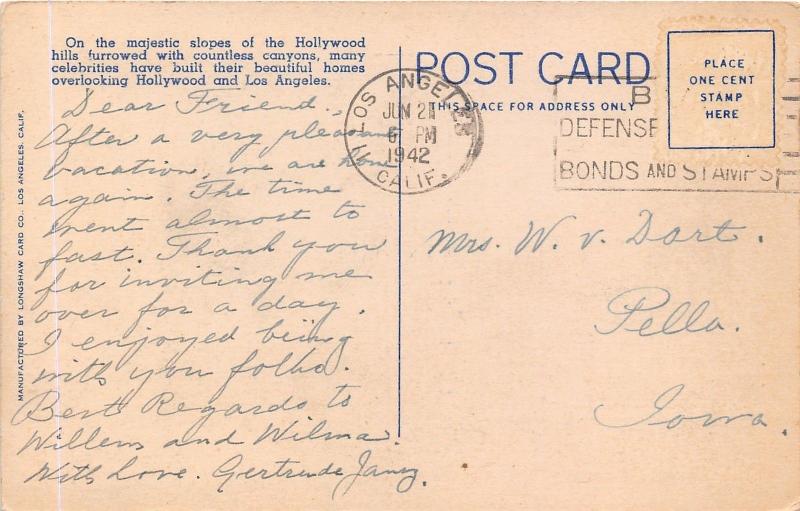 On the majestic slopes of the Hollywood
hills furrowed with countless canyons, many
celebrities have built their beautiful homes
overlooking Hollywood and Los Angeles.
POST CARD
THIS SPACE FOR ADDRESS ONLY
PLACE
ONE CENT
STAMP
HERE
LOS ANGELES
JUN 21
6 PM
1942
CALIF.
B
DEFENSE
BONDS AND STAMPS
MANUFACTORED BY LONGSHAW CARD CO., LOS ANGELES, CALIF.
Dear Friend,
After a very pleasant
vacation, we are home
again. The time
went almost to
fast. Thank you
for inviting me
over for a day.
I enjoyed being
with you folks.
Best Regards to
Willem and Wilma.
With Love. Gertrude
Mrs. W. v. Dart.
Pella.
Iowa.